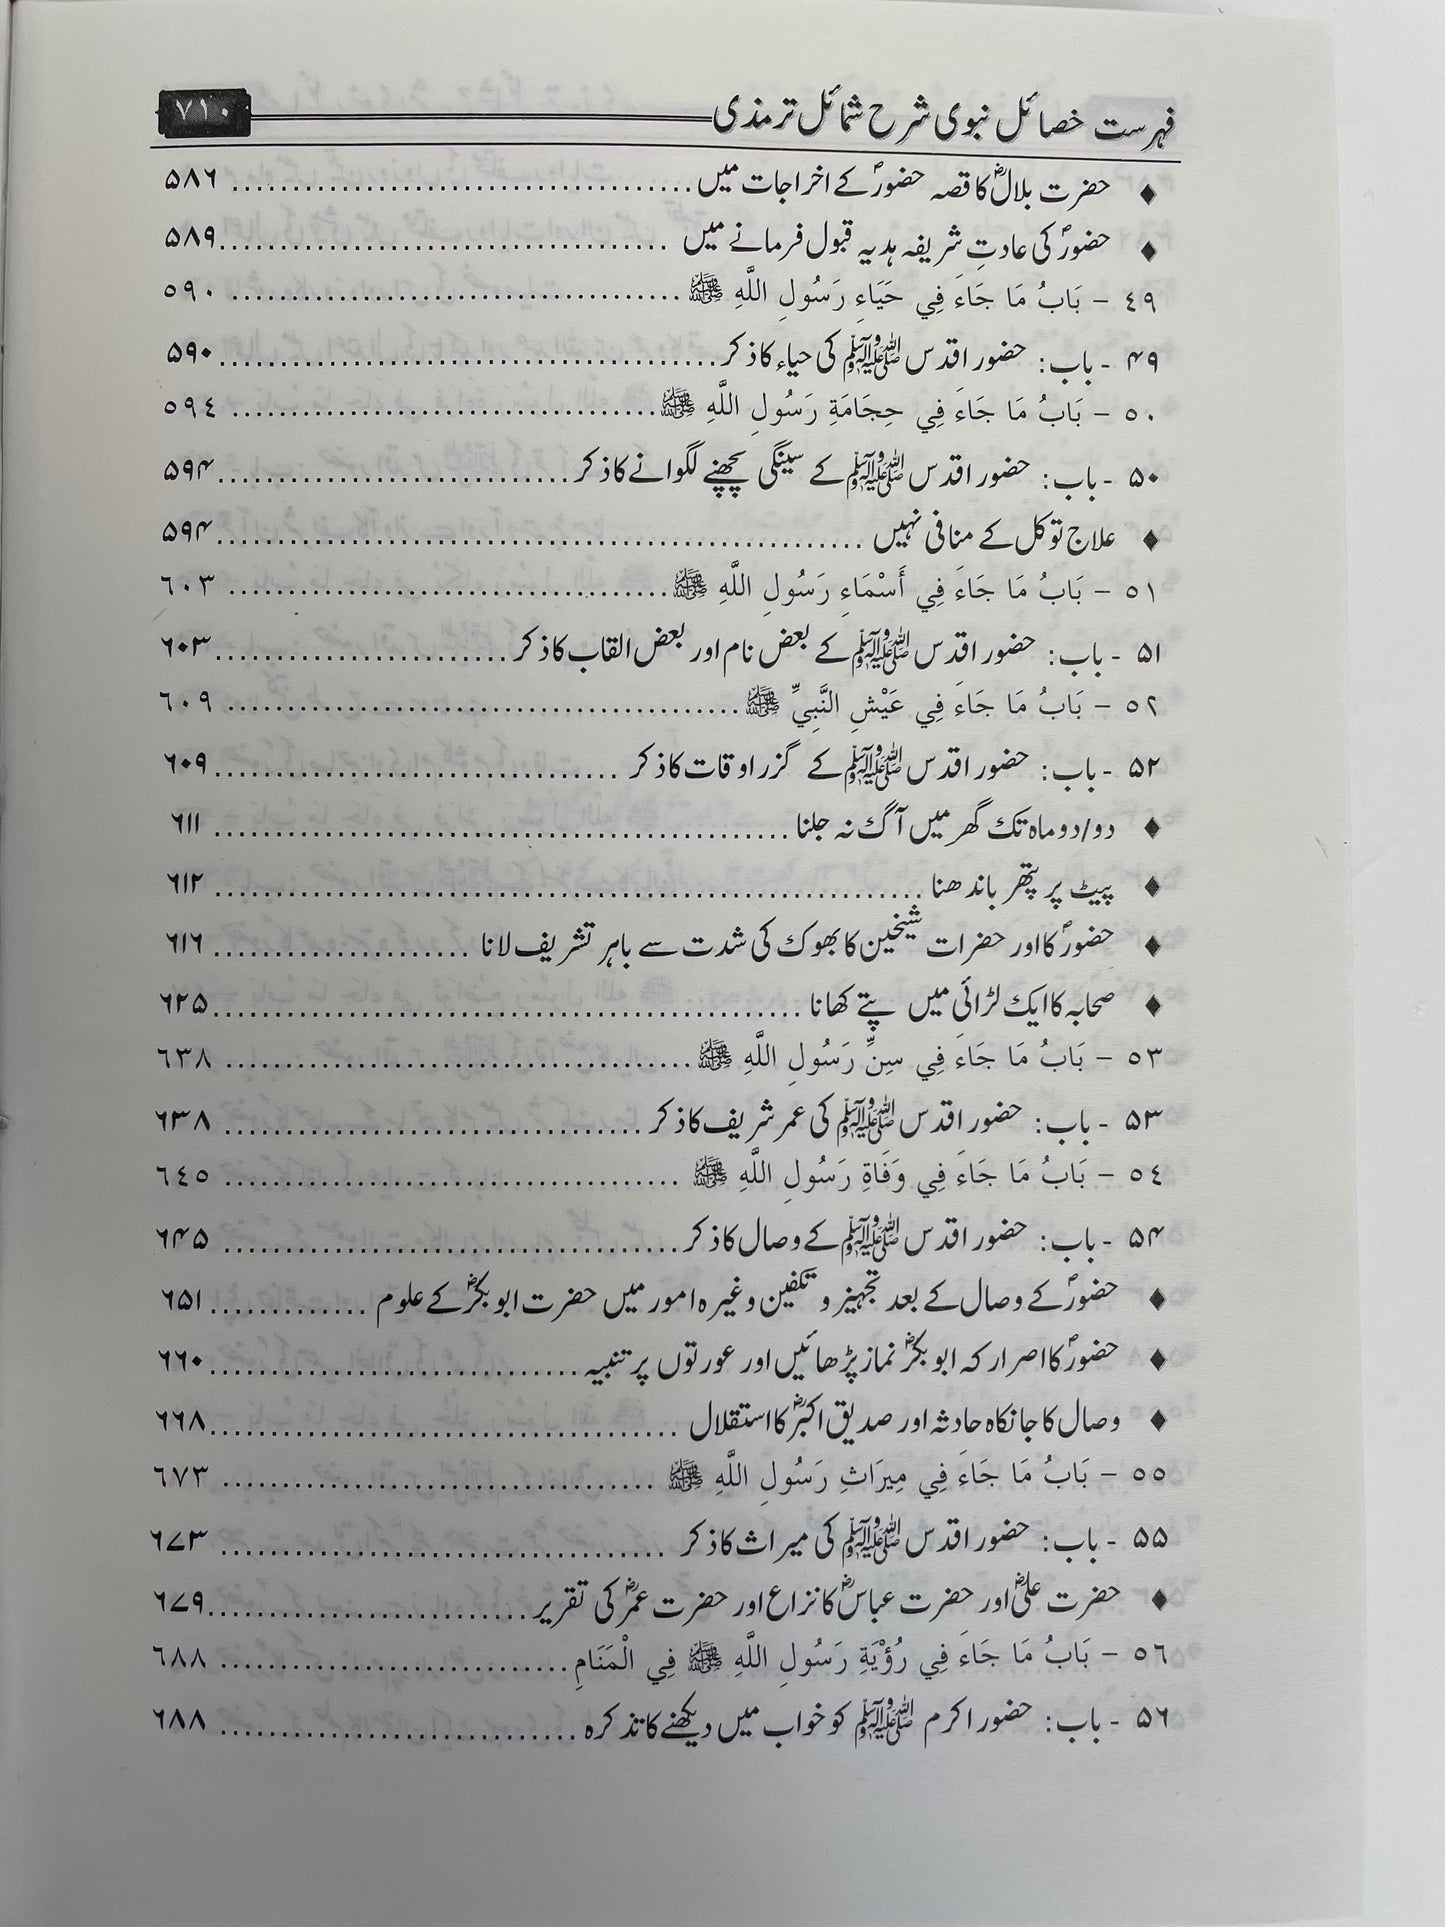 فہرست خصائل نبوی شرح شمائل ترمذی ۷۱۰
♦ حضرت بلالؓ کا قصہ حضورؐ کے اخراجات میں ........ ۵۸۶
♦ حضورؐ کی عادتِ شریفہ ہدیہ قبول فرمانے میں ........ ۵۸۹
٤٩ – بَابُ مَا جَاءَ فِي حَيَاءِ رَسُولِ اللَّهِ ﷺ ........ ٥٩٠
۴۹ - باب: حضور اقدس ﷺ کی حیاء کا ذکر ........ ۵۹۰
٥٠ – بَابُ مَا جَاءَ فِي حِجَامَةِ رَسُولِ اللَّهِ ﷺ ........ ٥٩٤
۵۰ - باب: حضور اقدس ﷺ کے سینگی پچھنے لگوانے کا ذکر ........ ۵۹۴
♦ علاج توکل کے منافی نہیں ........ ۵۹۴
٥١ – بَابُ مَا جَاءَ فِي أَسْمَاءِ رَسُولِ اللَّهِ ﷺ ........ ٦٠٣
۵۱ - باب: حضور اقدس ﷺ کے بعض نام اور بعض القاب کا ذکر ........ ۶۰۳
٥٢ – بَابُ مَا جَاءَ فِي عَيْشِ النَّبِيِّ ﷺ ........ ٦٠٩
۵۲ - باب: حضور اقدس ﷺ کے گزر اوقات کا ذکر ........ ۶۰۹
♦ دو/دو ماہ تک گھر میں آگ نہ جلنا ........ ۶۱۱
♦ پیٹ پر پتھر باندھنا ........ ۶۱۲
♦ حضورؐ کا اور حضرات شیخین کا بھوک کی شدت سے باہر تشریف لانا ........ ۶۱۶
♦ صحابہ کا ایک لڑائی میں پتے کھانا ........ ۶۲۵
٥٣ – بَابُ مَا جَاءَ فِي سِنِّ رَسُولِ اللَّهِ ﷺ ........ ٦٣٨
۵۳ - باب: حضور اقدس ﷺ کی عمر شریف کا ذکر ........ ۶۳۸
٥٤ – بَابُ مَا جَاءَ فِي وَفَاةِ رَسُولِ اللَّهِ ﷺ ........ ٦٤٥
۵۴ - باب: حضور اقدس ﷺ کے وصال کا ذکر ........ ۶۴۵
♦ حضورؐ کے وصال کے بعد تجہیز و تکفین وغیرہ امور میں حضرت ابوبکرؓ کے علوم ........ ۶۵۱
♦ حضورؐ کا اصرار کہ ابوبکرؓ نماز پڑھائیں اور عورتوں پر تنبیہ ........ ۶۶۰
♦ وصال کا جانکاہ حادثہ اور صدیق اکبرؓ کا استقلال ........ ۶۶۸
٥٥ – بَابُ مَا جَاءَ فِي مِيرَاثِ رَسُولِ اللَّهِ ﷺ ........ ٦٧٣
۵۵ - باب: حضور اقدس ﷺ کی میراث کا ذکر ........ ۶۷۳
♦ حضرت علیؓ اور حضرت عباسؓ کا نزاع اور حضرت عمرؓ کی تقریر ........ ۶۷۹
٥٦ – بَابُ مَا جَاءَ فِي رُؤْيَةِ رَسُولِ اللَّهِ ﷺ فِي الْمَنَامِ ........ ٦٨٨
۵۶ - باب: حضور اکرم ﷺ کو خواب میں دیکھنے کا تذکرہ ........ ۶۸۸